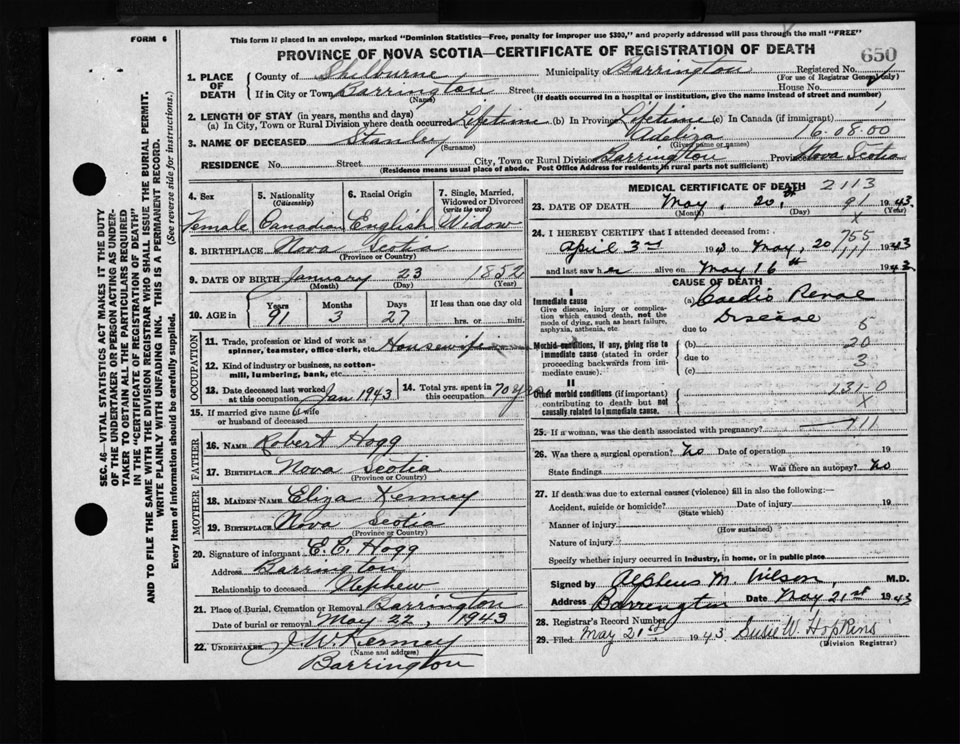 FORM 6
This form if placed in an envelope, marked "Dominion Statistics—Free, penalty for improper use $300," and properly addressed will pass through the mail "FREE"
PROVINCE OF NOVA SCOTIA—CERTIFICATE OF REGISTRATION OF DEATH
650
1. PLACE OF DEATH
County of Shelburne Municipality Barrington Registered No.
(For use of Registrar General only)
If in City or Town Barrington Street House No.
(Name) (If death occurred in a hospital or institution, give the name instead of street and number)
2. LENGTH OF STAY (in years, months and days)
(a) In City, Town or Rural Division where death occurred Lifetime (b) In Province Lifetime (c) In Canada (if immigrant)
3. NAME OF DECEASED Stanley Adeliza 16.08.00
(Surname) (Given name or names)
RESIDENCE No. Street City, Town or Rural Division Barrington Province Nova Scotia
(Residence means usual place of abode. Post Office Address for residents in rural parts not sufficient)
4. Sex
Female
5. Nationality
(Citizenship)
Canadian
6. Racial Origin
English
7. Single, Married, Widowed or Divorced
(write the word)
Widow
8. BIRTHPLACE Nova Scotia
(Province or Country)
9. DATE OF BIRTH January 23 1852
(Month) (Day) (Year)
10. AGE in
Years Months Days If less than one day
91 3 27 hrs. or min.
OCCUPATION
11. Trade, profession or kind of work as spinner, teamster, office clerk, etc. Housewife
12. Kind of industry or business, as cotton-mill, lumbering, bank, etc.
13. Date deceased last worked at this occupation Jan 1943
14. Total yrs. spent in this occupation 70 yrs
15. If married give name of wife or husband of deceased
FATHER
16. NAME Robert Hogg
17. BIRTHPLACE Nova Scotia
(Province or Country)
MOTHER
18. MAIDEN NAME Eliza Kenney
19. BIRTHPLACE Nova Scotia
(Province or Country)
20. Signature of informant E.C. Hogg
Address Barrington
Relationship to deceased Nephew
21. Place of Burial, Cremation or Removal Barrington
Date of burial or removal May 22, 1943
22. UNDERTAKER J.W. Kenney
(Name and address)
Barrington
MEDICAL CERTIFICATE OF DEATH 2113
23. DATE OF DEATH May, 20th 91 1943
(Month) (Day) (Year)
x
24. I HEREBY CERTIFY that I attended deceased from: 755
April 3rd 1943 to May, 20 1943
and last saw her alive on May 16th 1943
CAUSE OF DEATH
I
Immediate cause
Give disease, injury or complication which caused death, not the mode of dying, such as heart failure, asphyxia, asthenia, etc.
(a) Cardio Renal Disease
due to 5
Morbid conditions, if any, giving rise to immediate cause (stated in order proceeding backwards from immediate cause).
(b) 20
due to 3
(c)
II
Other morbid conditions (if important) contributing to death but not causally related to immediate cause.
131-0
x
25. If a woman, was the death associated with pregnancy?
26. Was there a surgical operation? No Date of operation 19
State findings Was there an autopsy? No
27. If death was due to external causes (violence) fill in also the following:—
Accident, suicide or homicide? Date of injury 19
(State which)
Manner of injury
(How sustained)
Nature of injury
Specify whether injury occurred in industry, in home, or in public place
Signed by Alpheus M. Wilson, M.D.
Address Barrington Date May 21st 1943
28. Registrar's Record Number
29. Filed May 21st 1943 Susie W. Hopkins
(Division Registrar)
SEC. 46—VITAL STATISTICS ACT MAKES IT THE DUTY
OF THE UNDERTAKER OR PERSON ACTING AS UNDER-
TAKER TO OBTAIN ALL THE PARTICULARS REQUIRED
IN THE "CERTIFICATE OF REGISTRATION OF DEATH"
AND TO FILE THE SAME WITH THE DIVISION REGISTRAR WHO SHALL ISSUE THE BURIAL PERMIT.
WRITE PLAINLY WITH UNFADING INK. THIS IS A PERMANENT RECORD.
Every item of information should be carefully supplied. (See reverse side for instructions.)